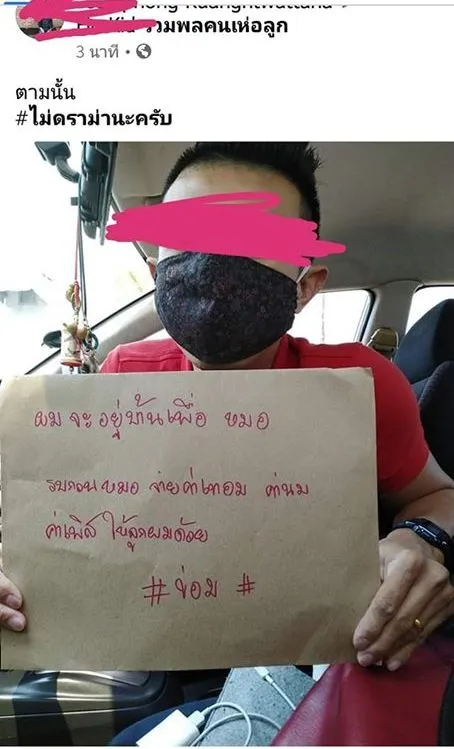 รวมพลคนเห่อลูก
3 นาที
ตามนั้น
#ไม่ดราม่านะครับ
ผม จะ อยู่บ้านเพื่อ หมอ
รบกวน หมอ จ่ายค่าเทอม ค่านม
ค่าเพิส ให้ลูกผมด้วย
# ข่อม #